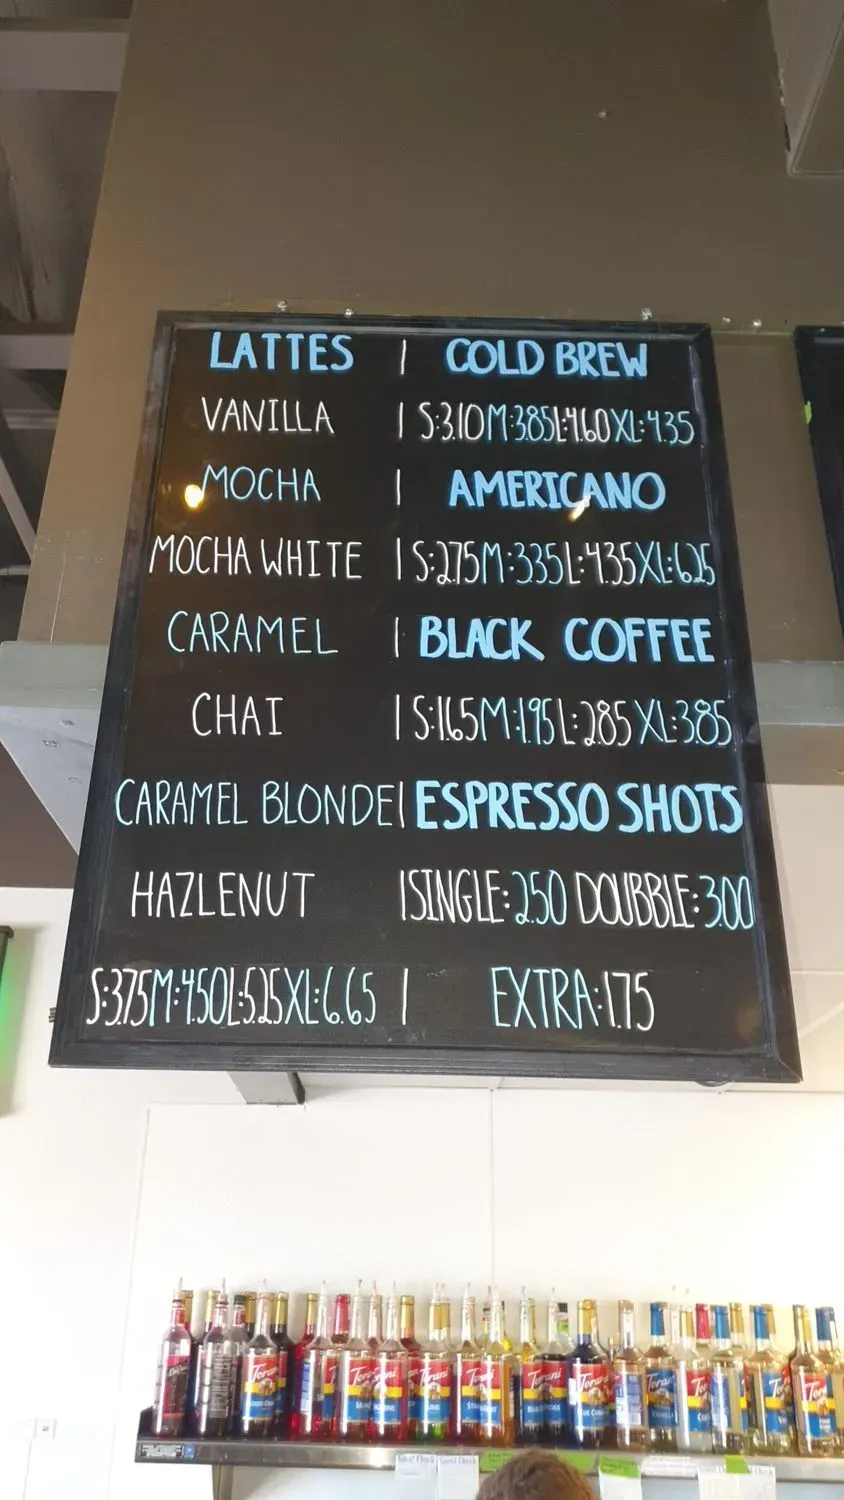 LATTES | COLD BREW
VANILLA | S:3.10 M:3.85 L:4.60 XL:4.35
MOCHA | AMERICANO
MOCHA WHITE | S:2.75 M:3.35 L:4.35 XL:6.25
CARAMEL | BLACK COFFEE
CHAI | S:1.65 M:1.95 L:2.85 XL:3.85
CARAMEL BLONDE | ESPRESSO SHOTS
HAZLENUT | SINGLE:2.50 DOUBBLE:3.00
S:3.75 M:4.50 L:5.25 XL:6.65 | EXTRA:1.75
Torani Torani Torani Torani Torani Torani Torani Torani